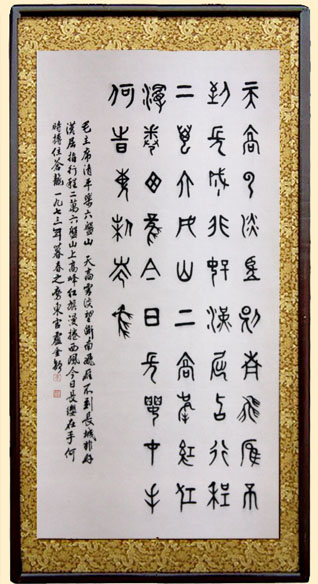 天高雲淡望斷南飛雁不
到長城非好漢屈指行程
二萬六盤山上高峰紅旗
漫卷西風今日長纓在手
何時縛住蒼龍
毛主席清平樂六盤山 天高雲淡望斷南飛雁不到長城非好
漢屈指行程二萬六盤山上高峰紅旗漫捲西風今日長纓在手何
時縛住蒼龍 一九七三年暮春之 東官盧